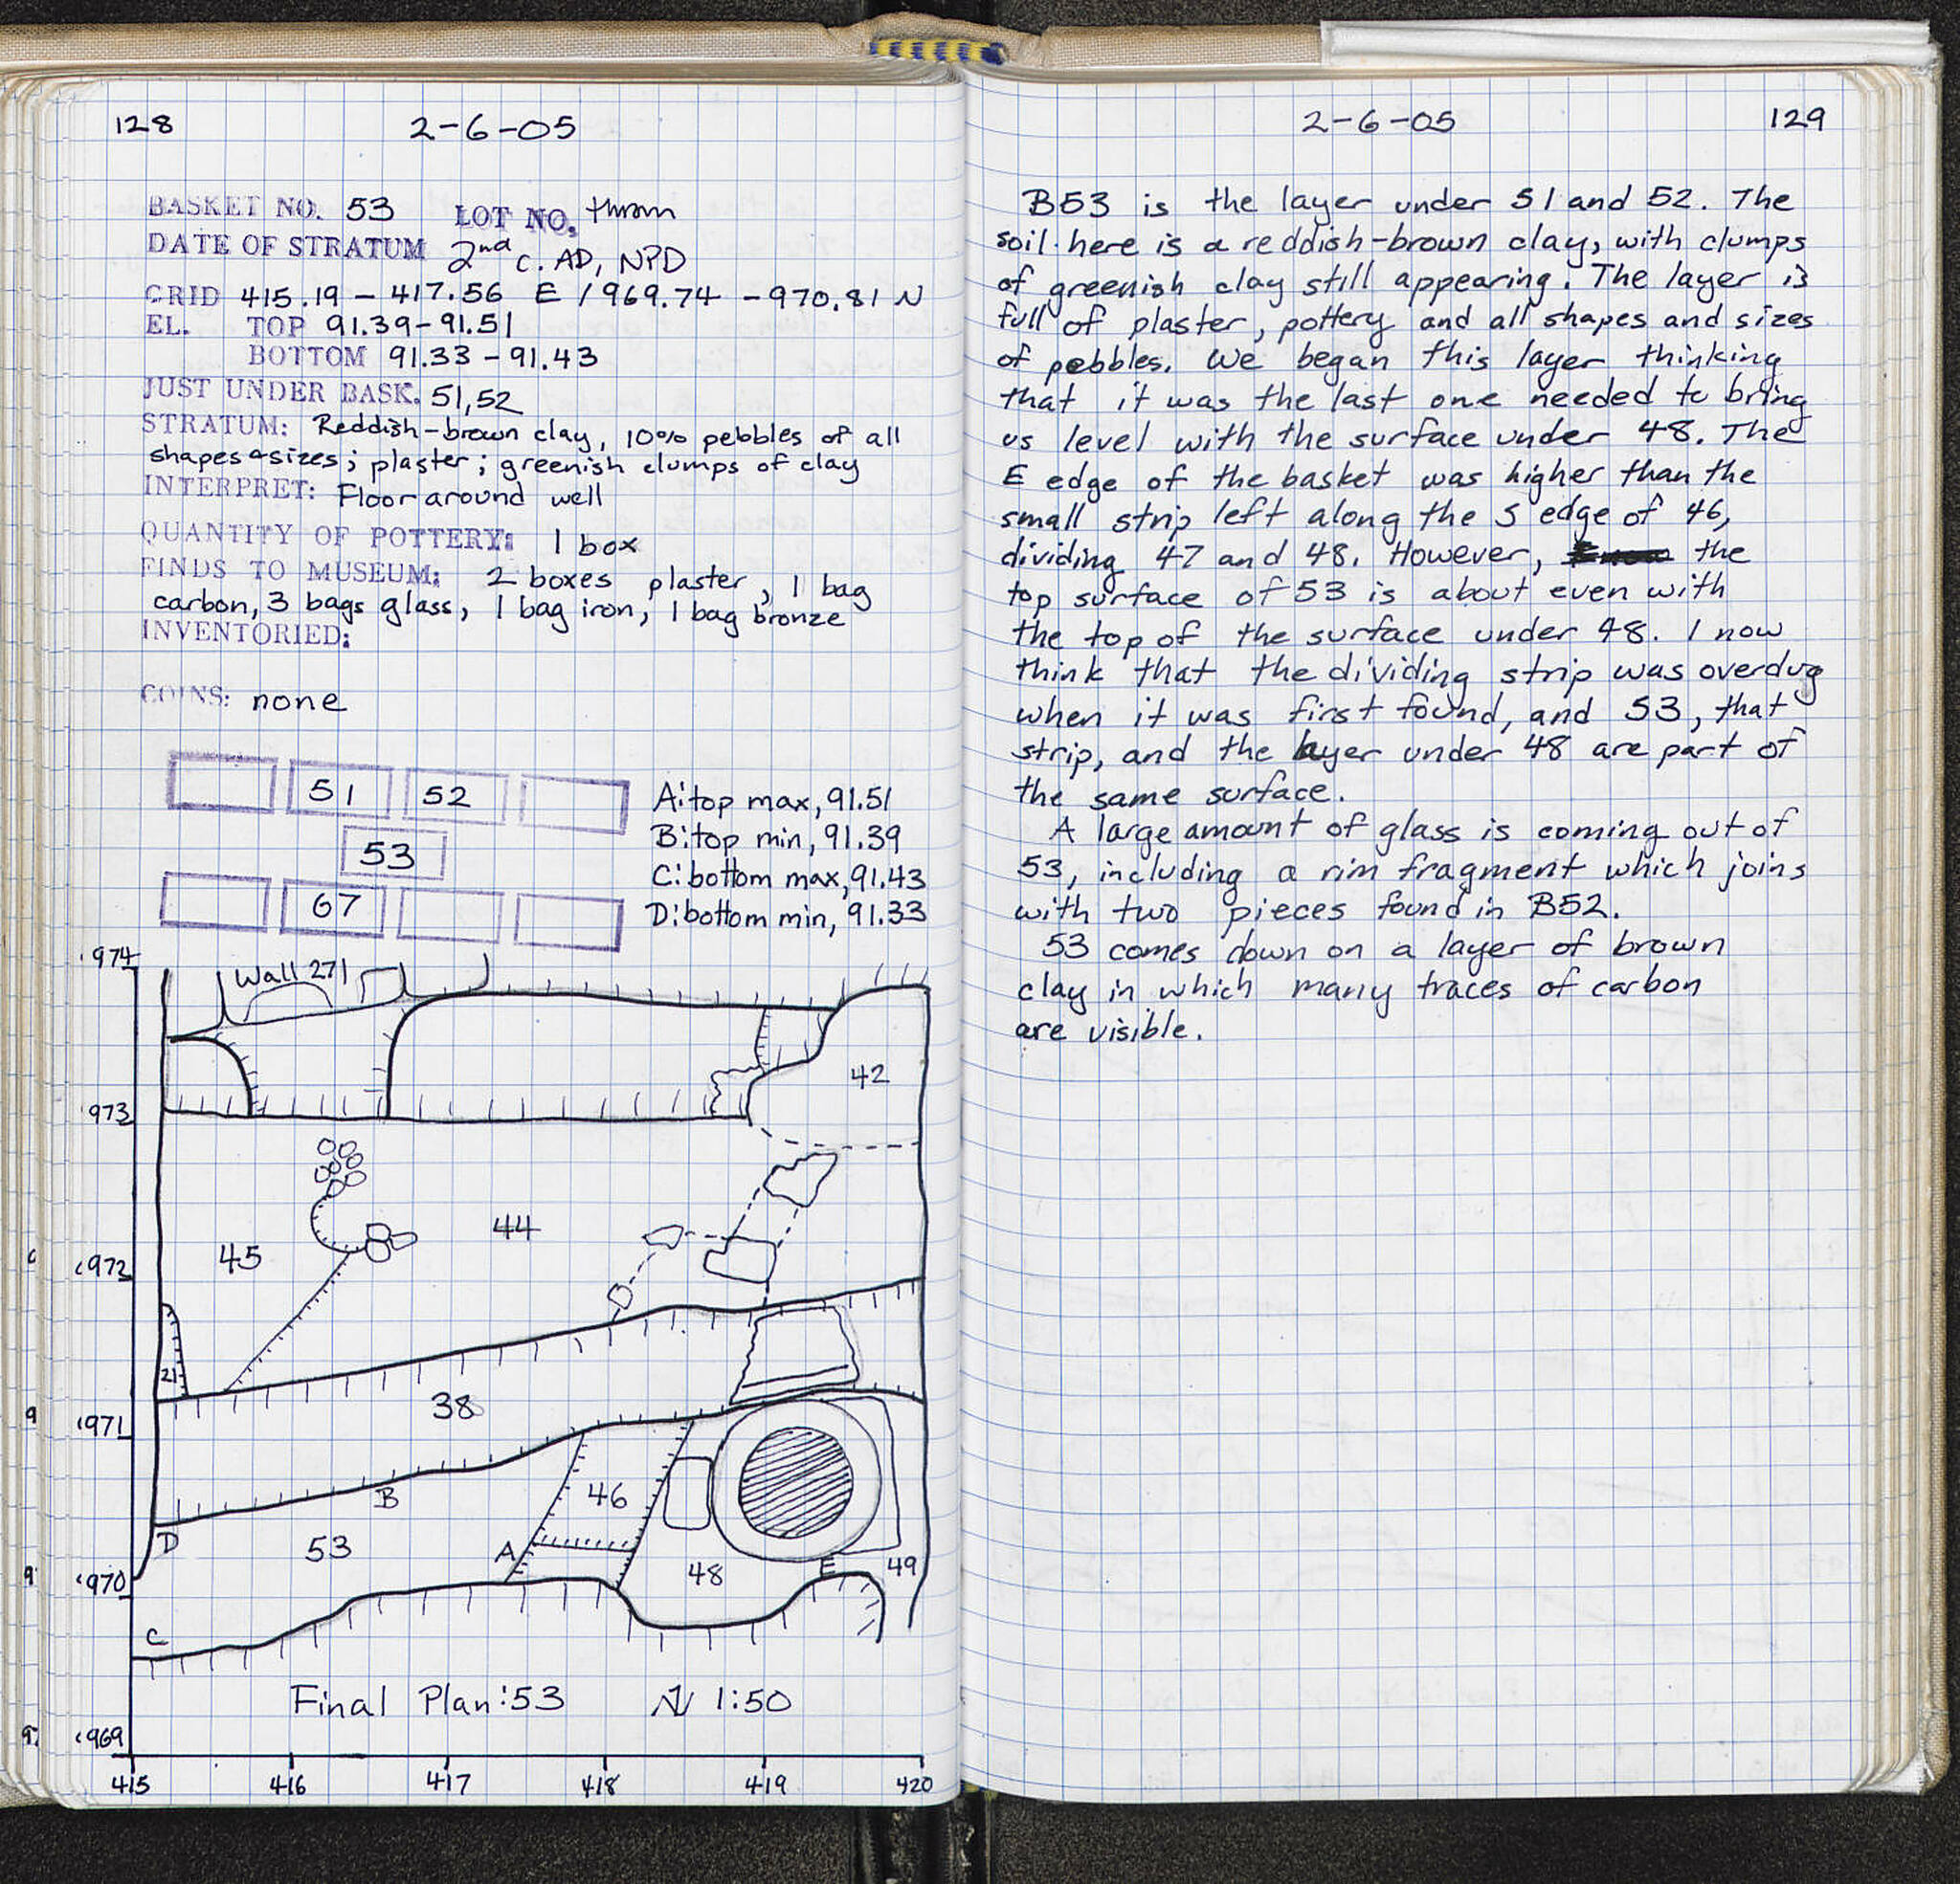 128
2-6-05
BASKET NO. 53 LOT NO. thrown
DATE OF STRATUM 2nd c. AD, NPD
GRID 415.19 - 417.56 E / 969.74 - 970.81 N
EL. TOP 91.39-91.51
BOTTOM 91.33 - 91.43
JUST UNDER BASK. 51,52
STRATUM: Reddish-brown clay, 10% pebbles of all
shapes & sizes; plaster; greenish clumps of clay
INTERPRET: Floor around well
QUANTITY OF POTTERY: 1 box
FINDS TO MUSEUM: 2 boxes plaster, 1 bag
carbon, 3 bags glass, 1 bag iron, 1 bag bronze
INVENTORIED:
COINS: none
51 52
53
67
A: top max, 91.51
B: top min, 91.39
C: bottom max, 91.43
D: bottom min, 91.33
1974
Wall 271
42
1973
45
44
1972
21
38
1971
B
46
D
53
A
48
E
49
1970
C
Final Plan: 53 N 1:50
1969
415 416 417 418 419 420
2-6-05
129
B53 is the layer under 51 and 52. The
soil here is a reddish-brown clay, with clumps
of greenish clay still appearing. The layer is
full of plaster, pottery and all shapes and sizes
of pebbles. We began this layer thinking
that it was the last one needed to bring
us level with the surface under 48. The
E edge of the basket was higher than the
small strip left along the S edge of 46,
dividing 47 and 48. However, the
top surface of 53 is about even with
the top of the surface under 48. I now
think that the dividing strip was overdug
when it was first found, and 53, that
strip, and the layer under 48 are part of
the same surface.
A large amount of glass is coming out of
53, including a rim fragment which joins
with two pieces found in B52.
53 comes down on a layer of brown
clay in which many traces of carbon
are visible.